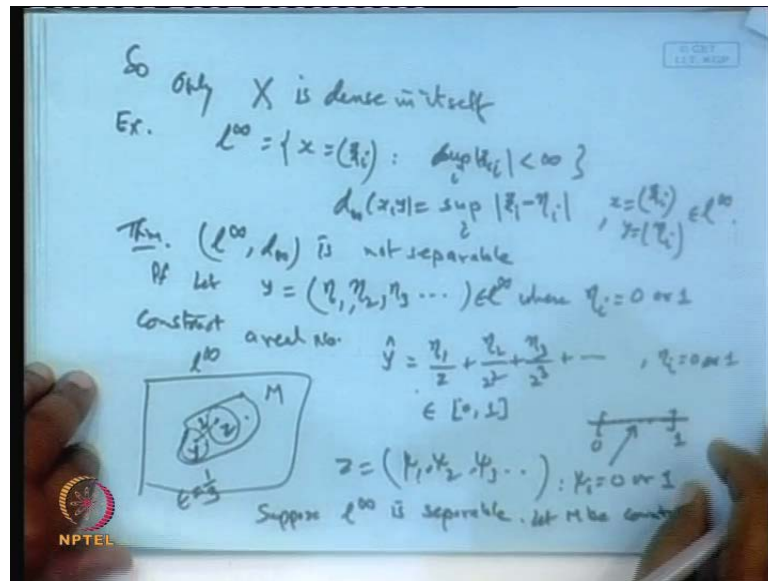 So only X is dense in itself
Ex. l^∞ = { x = (ξ_i) : sup_i |ξ_i| < ∞ }
d_∞(x,y) = sup_i |ξ_i - η_i| , x = (ξ_i) y = (η_i) ∈ l^∞.
Thm. (l^∞, d_∞) is not separable
Pf Let y = (η_1, η_2, η_3 ...) ∈ l^∞ where η_i = 0 or 1
Construct a real No. ŷ = η_1/2 + η_2/2^2 + η_3/2^3 + ... , η_i = 0 or 1
∈ [0, 1]
l^∞
M
y z
0 1
ε = 1/3
z = (ψ_1, ψ_2, ψ_3 ...) : ψ_i = 0 or 1
Suppose l^∞ is separable. Let M be
NPTEL